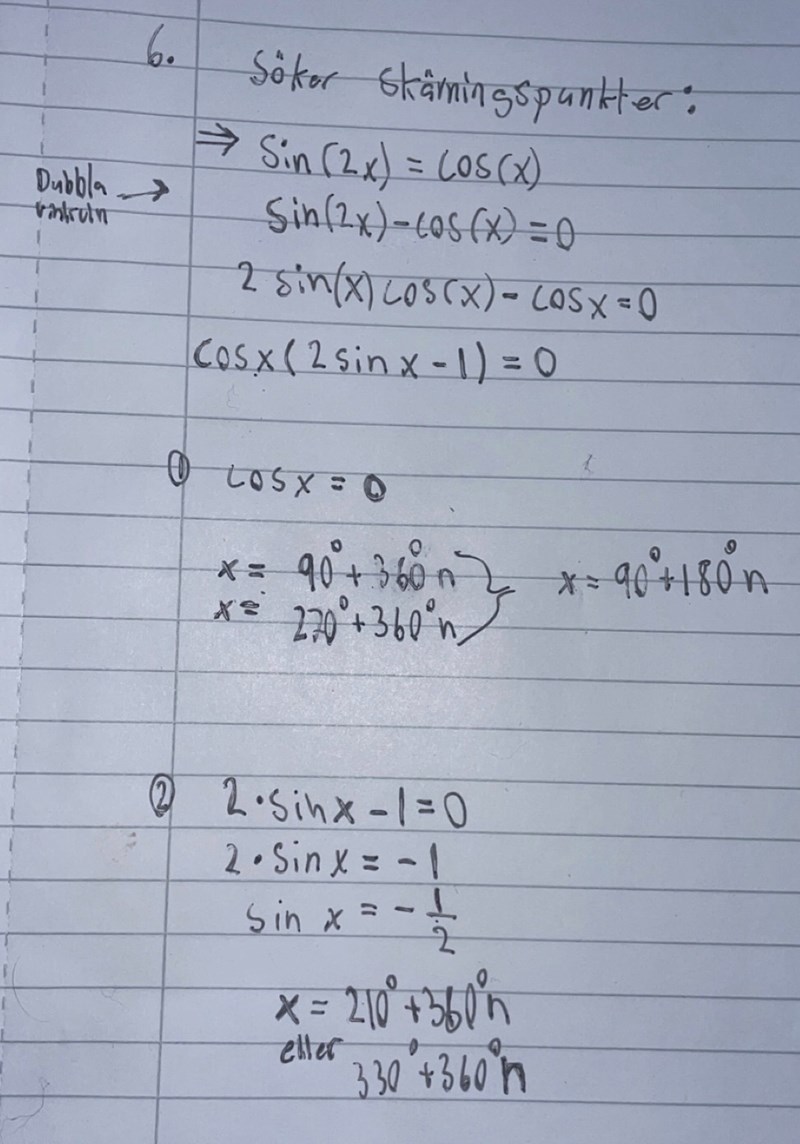 6.
Söker skärningspunkter:
⇒ Sin(2x) = cos(x)
Dubbla →
Sin(2x)-cos(x) = 0
2 sin(x) cos(x) - cosx = 0
cosx(2sin x - 1) = 0
① cosx = 0
x = 90° + 360°n } x = 90°+180°n
x = 270°+360°n
② 2·sinx - 1 = 0
2·sinx = -1
sin x = -1/2
x = 210°+360°n
eller 330°+360°n